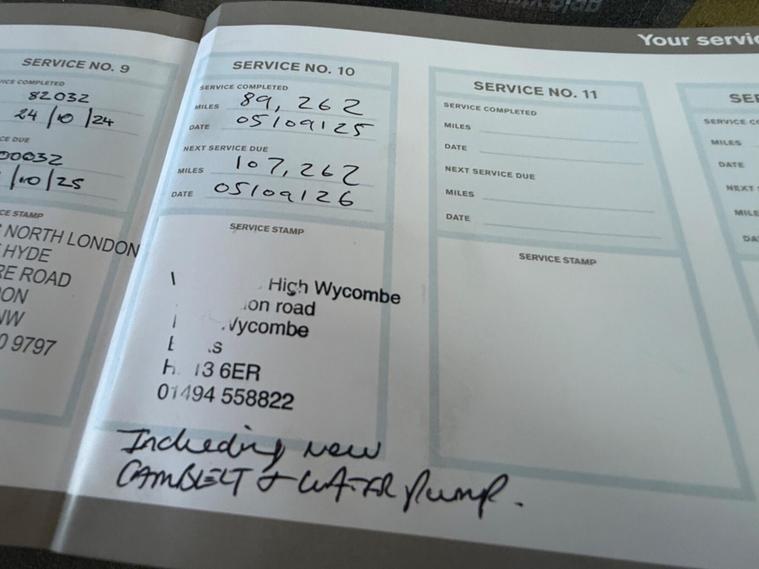 Your servic
SERVICE NO. 9
ICE COMPLETED
82032
24/10/24
CE DUE
00032
/10/25
CE STAMP
NORTH LONDON
HYDE
RE ROAD
ON
NW
0 9797
SERVICE NO. 10
SERVICE COMPLETED
MILES 89,262
DATE 05/09/25
NEXT SERVICE DUE
MILES 107,262
DATE 05/09/26
SERVICE STAMP
High Wycombe
on road
Wycombe
6ER
01494 558822
Including new
CAMBELT & WATER pump.
SERVICE NO. 11
SERVICE COMPLETED
MILES
DATE
NEXT SERVICE DUE
MILES
DATE
SERVICE STAMP
SE
SERVICE C
MILES
DATE
NEXT
MILE
DA